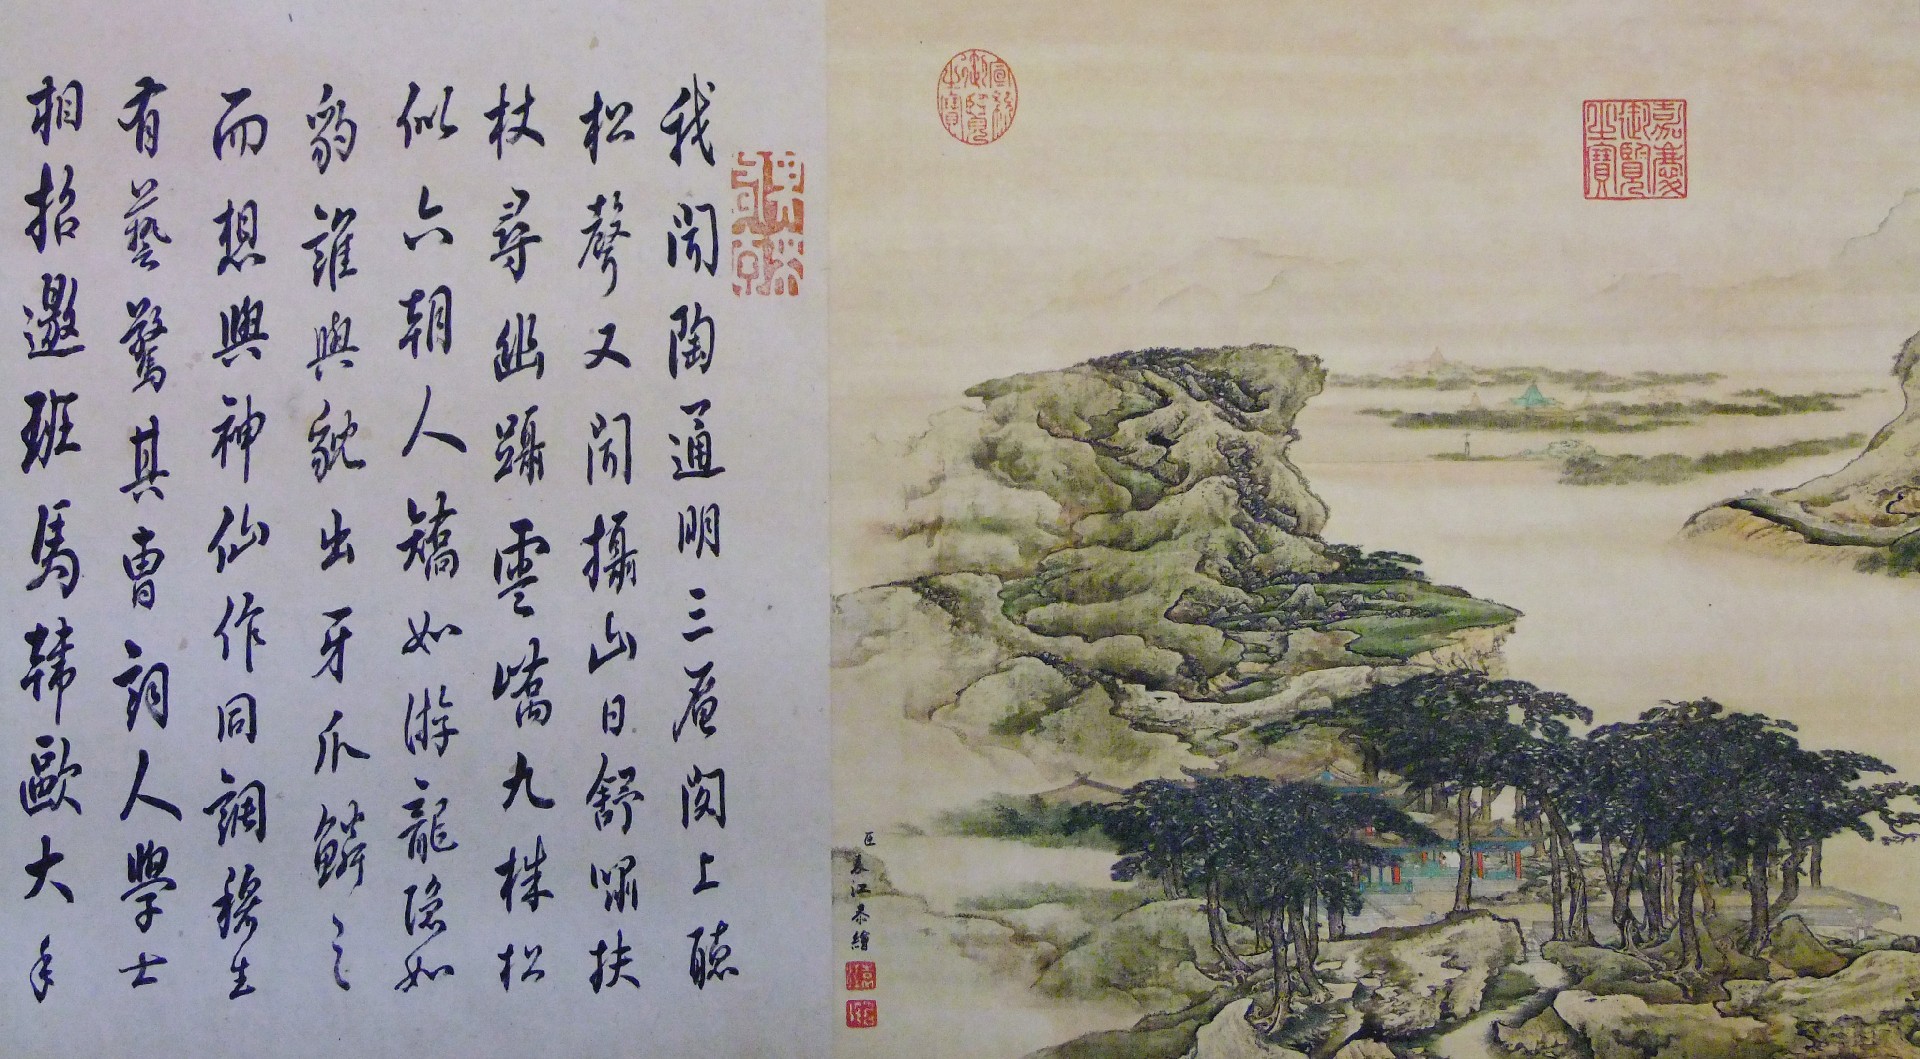 嘉慶御覽之寶
宣統御覽之寶
臣袁江恭繪
我聞陶通明三層閣上聽
松聲又聞攝山日舒嘯扶
杖尋幽躡雲嶠九株松
似六朝人矯如游龍隐如
豹誰與貌出牙爪鱗之
而想與神仙作同調穆生
有藝驚其曹詞人學士
相招邀班馬韓歐大手